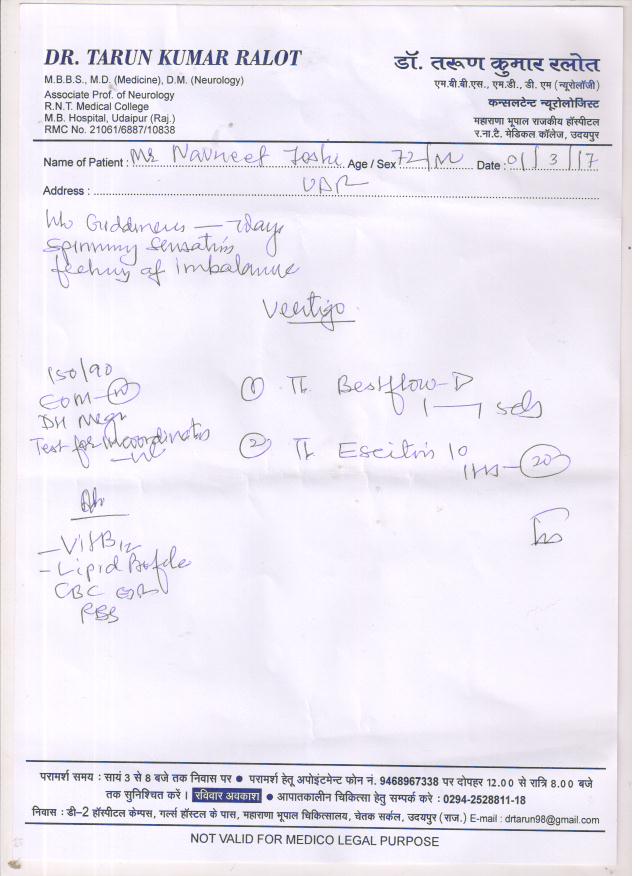 DR. TARUN KUMAR RALOT
M.B.B.S., M.D. (Medicine), D.M. (Neurology)
Associate Prof. of Neurology
R.N.T. Medical College
M.B. Hospital, Udaipur (Raj.)
RMC No. 21061/6887/10838
डॉ. तरूण कुमार रलोत
एम.बी.बी.एस., एम.डी., डी. एम (न्यूरोलॉजी)
कन्सलटेन्ट न्यूरोलोजिस्ट
महाराणा भूपाल राजकीय हॉस्पीटल
र.ना.टै. मेडिकल कॉलेज, उदयपुर
Name of Patient : Mr Navneet Joshi Age / Sex 72/M Date : 01/3/17
Address : UDR
Giddiness — 7days
Spinning Sensation
feeling of imbalance
Vertigo
150/90
EOM-
DH Negr
Test for Incoordination
① Tt. Bestflow-D
1—1
② Tt Escitris 10
1HS — 20
- Vit B12
- Lipid Profile
CBC ESR
RBS
परामर्श समय : सायं 3 से 8 बजे तक निवास पर ● परामर्श हेतू अपोइंटमेन्ट फोन नं. 9468967338 पर दोपहर 12.00 से रात्रि 8.00 बजे
तक सुनिश्चित करें । रविवार अवकाश ● आपातकालीन चिकित्सा हेतु सम्पर्क करे : 0294-2528811-18
निवास : डी–2 हॉस्पीटल केम्पस, गर्ल्स हॉस्टल के पास, महाराणा भूपाल चिकित्सालय, चेतक सर्कल, उदयपुर (राज.) E-mail : drtarun98@gmail.com
NOT VALID FOR MEDICO LEGAL PURPOSE